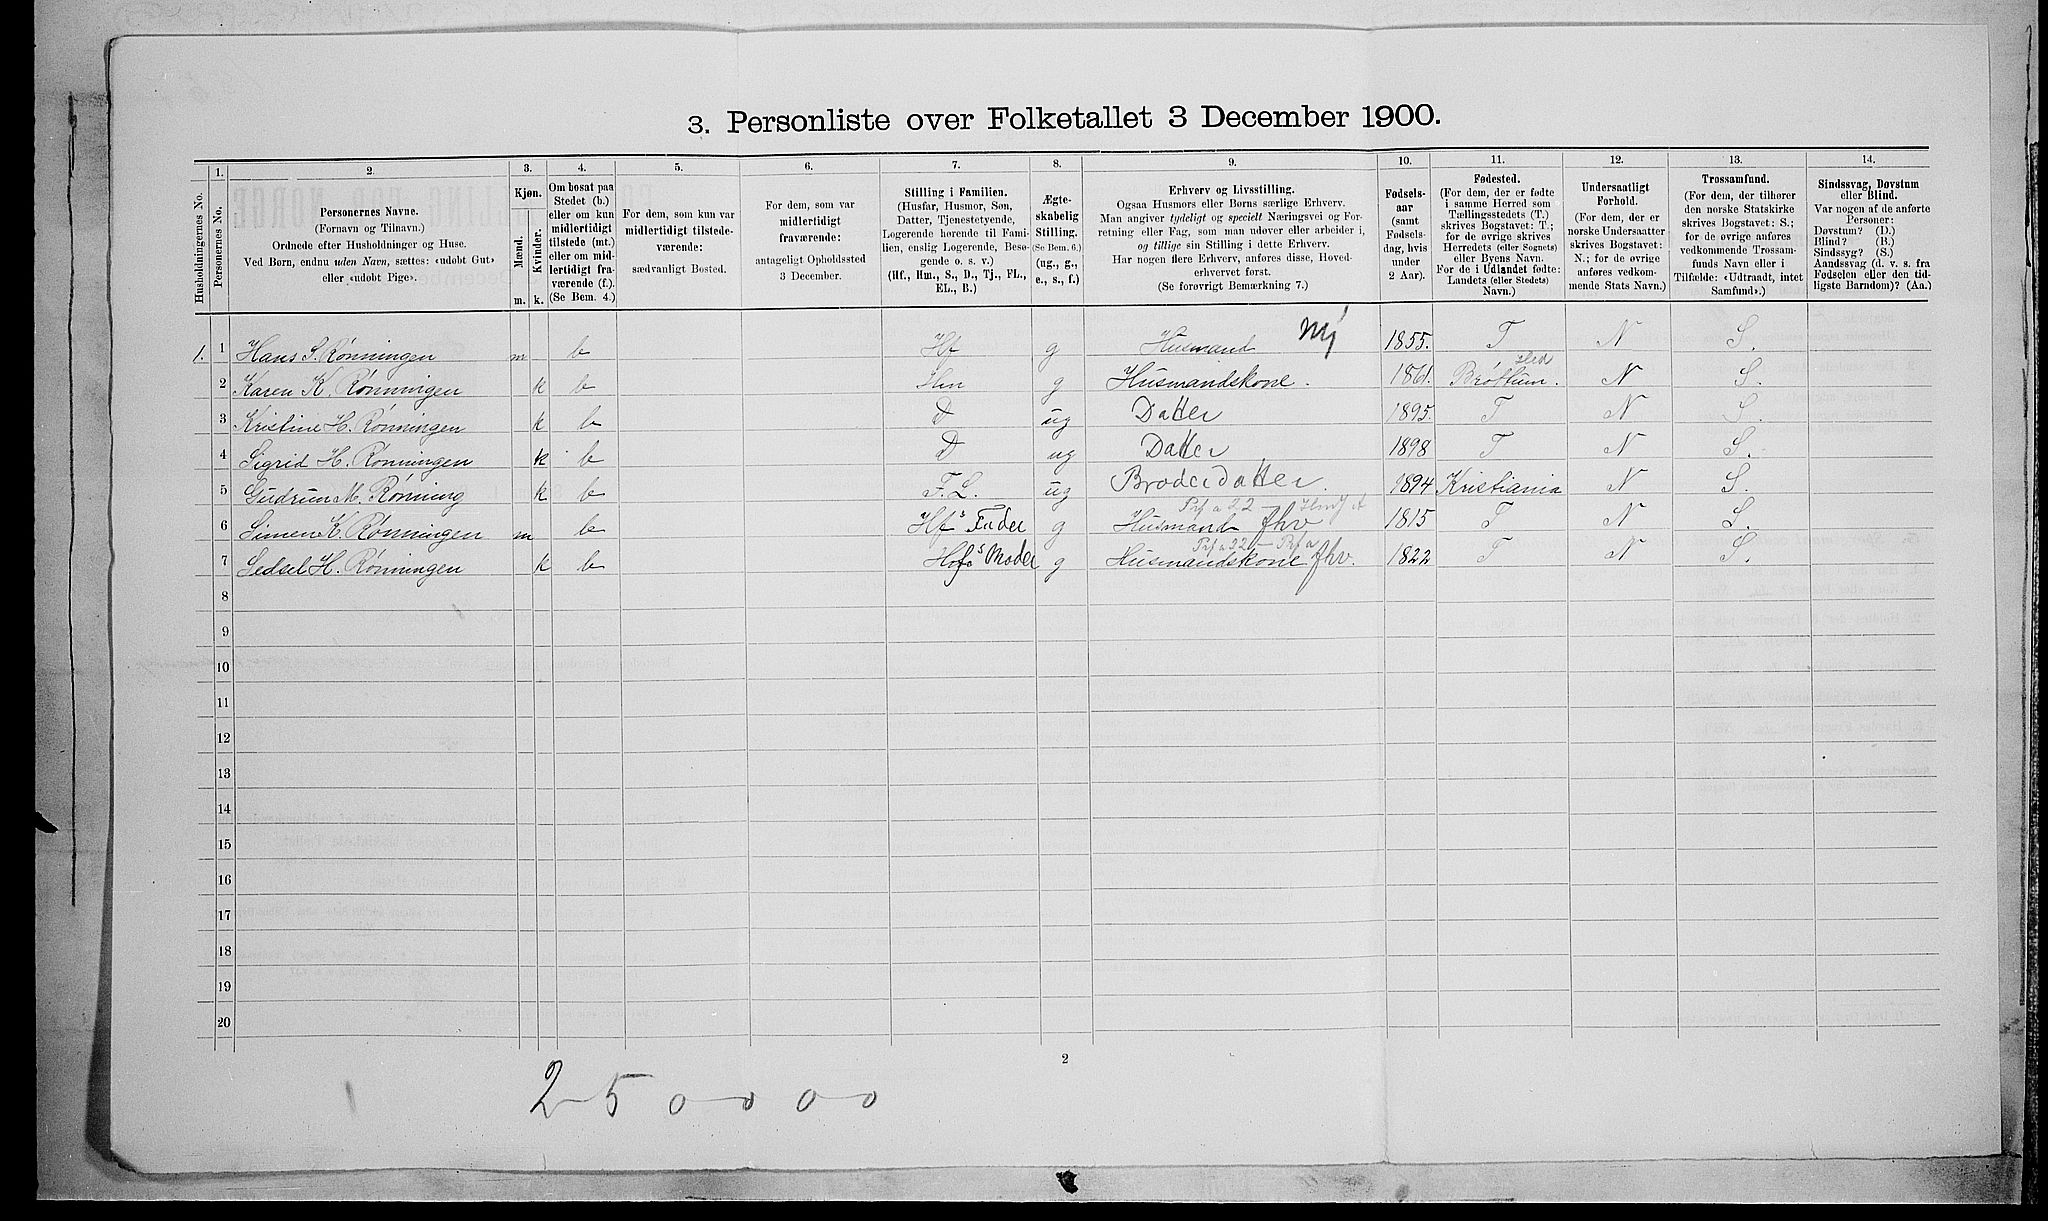 3. Personliste over Folketallet 3 December 1900.
Husholdningernes No.
1.
Personernes No.
2.
Personernes Navne.
(Fornavn og Tilnavn.)
Ordnede efter Husholdninger og Huse.
Ved Børn, endnu uden Navn, sættes: «udøbt Gut»
eller «udøbt Pige».
3.
Kjøn.
Mænd.
Kvinder.
m. k.
4.
Om bosat paa
Stedet (b.)
eller om kun
midlertidigt
tilstede (mt.)
eller om mid-
lertidigt fra-
værende (f.).
(Se Bem. 4.)
5.
For dem, som kun var
midlertidigt tilstede-
værende:
sædvanligt Bosted.
6.
For dem, som var
midlertidigt
fraværende:
antageligt Opholdssted
3 December.
7.
Stilling i Familien.
(Husfar, Husmor, Søn,
Datter, Tjenestetyende,
Logerende hørende til Fami-
lien, enslig Logerende, Besø-
gende o. s. v.)
(Hf., Hm., S., D., Tj., FL.,
EL., B.)
8.
Ægte-
skabelig
Stilling.
(Se Bem. 6.)
(ug., g.,
e., s., f.)
9.
Erhverv og Livsstilling.
Ogsaa Husmors eller Børns særlige Erhverv.
Man angiver tydeligt og specielt Næringsvei og For-
retning eller Fag, som man udøver eller arbeider i,
og tillige sin Stilling i dette Erhverv.
Har nogen flere Erhverv, anføres disse, Hoved-
erhvervet først.
(Se forøvrigt Bemærkning 7.)
10.
Fødsels-
aar
(samt
Fødsels-
dag, hvis
under
2 Aar).
11.
Fødested.
(For dem, der er fødte
i samme Herred som
Tællingsstedets (T.)
skrives Bogstavet: T.;
for de øvrige skrives
Herredets (eller Sognets)
eller Byens Navn.
For de i Udlandet fødte:
Landets (eller Stedets)
Navn.)
12.
Undersaatligt
Forhold.
(For dem, der er
norske Undersaatter
skrives Bogstavet:
N.; for de øvrige
anføres vedkom-
mende Stats Navn.)
13.
Trossamfund.
(For dem, der tilhører
den norske Statskirke
skrives Bogstavet: S.;
for de øvrige anføres
vedkommende Trossam-
funds Navn eller i
Tilfælde: «Udtraadt, intet
Samfund».)
14.
Sindssvag, Døvstum
eller Blind.
Var nogen af de anførte
Personer:
Døvstum? (D.)
Blind? (B.)
Sindssyg? (S.)
Aandssvag (d. v. s. fra
Fødselen eller den tid-
ligste Barndom)? (Aa.)
1. 1 Hans S. Rønningen m b Hf g Husmand 1855. T N S.
2 Karen K. Rønningen k b Hm g Husmandskone. 1861. Brøttum. Hed N S.
3 Kristine H. Rønningen k b D ug Datter 1895. T N S.
4 Sigrid H. Rønningen k b D ug Datter 1898 T N S.
5 Gudrun M. Rønning k b F.L. ug Broderdatter. 1894 Kristiania N S.
6 Simen K. Rønningen m b Hfs Fader g Husmand fhv 1815 T N S.
7 Sedsel H. Rønningen k b Hofs Moder g Husmandskone fhv. 1822 T N S.
8
9
10
11
12
13
14
15
16
17
18
19
20
2
2 5 0 0 0 0